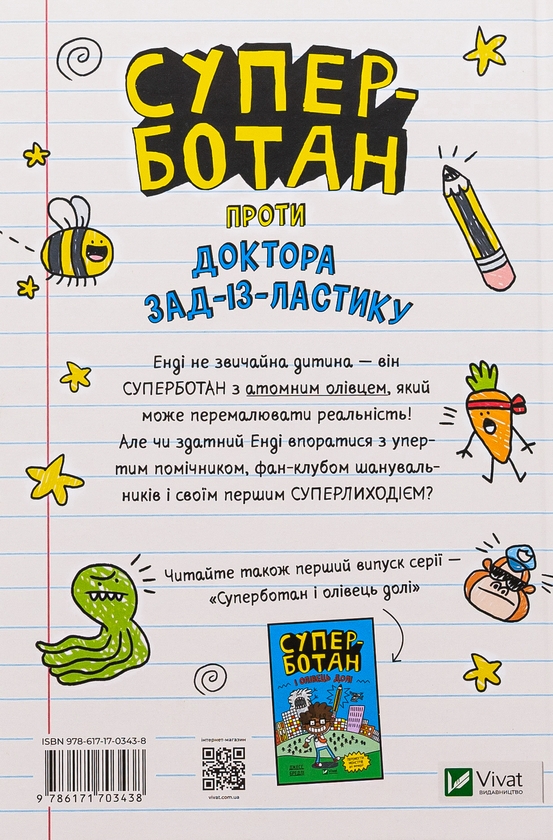 СУПЕР-
БОТАН
ПРОТИ
ДОКТОРА
ЗАД-ІЗ-ЛАСТИКУ
Енді не звичайна дитина — він
СУПЕРБОТАН з атомним олівцем, який
може перемалювати реальність!
Але чи здатний Енді впоратися з упер-
тим помічником, фан-клубом шануваль-
ників і своїм першим СУПЕРЛИХОДІЄМ?
Читайте також перший випуск серії —
«Суперботан і олівець долі»
СУПЕР-
БОТАН
І ОЛІВЕЦЬ ДОЛІ
ISBN 978-617-17-0343-8
9 786171 703438
інтернет-магазин
vivat.com.ua
Vivat
ВИДАВНИЦТВО